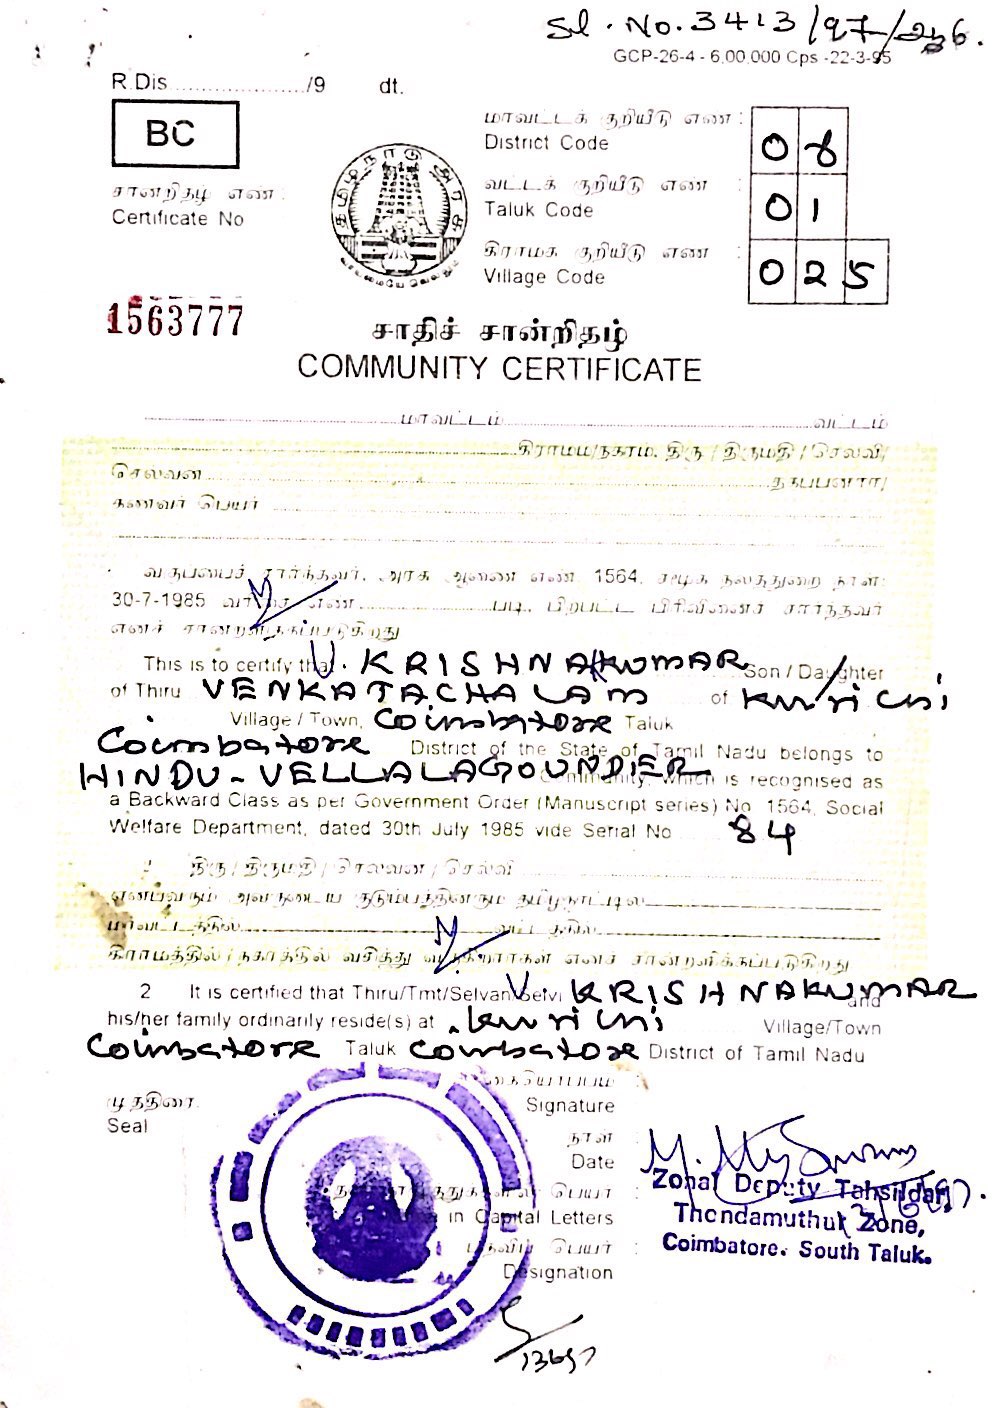 Sl. No. 3413/97/
GCP-26-4 - 6,00,000 Cps -22-3-95
R.Dis................../9 dt.
BC
மாவட்டக் குறியீடு எண் :
District Code
08
சான்றிதழ் எண் :
Certificate No
வட்டக் குறியீடு எண் :
Taluk Code
01
கிராமக் குறியீடு எண் :
Village Code
025
தமிழ்நாடு அரசு
வாய்மையே வெல்லும்
1563777
சாதிச் சான்றிதழ்
COMMUNITY CERTIFICATE
மாவட்டம் வட்டம்
கிராமம்/நகரம். திரு / திருமதி / செல்வி/
செல்வன் தகப்பனார்/
கணவர் பெயர்
வகுப்பைச் சார்ந்தவர். அரசு ஆணை எண் 1564, சமூக நலத்துறை நாள்:
30-7-1985 வரிசை எண் படி, பிற்பட்ட பிரிவினைச் சார்ந்தவர்
எனச் சான்றளிக்கப்படுகிறது
This is to certify that V. KRISHNAKUMAR Son / Daughter
of Thiru VENKATACHALAM of Kurichi
Village / Town, Coimbatore Taluk
Coimbatore District of the State of Tamil Nadu belongs to
HINDU-VELLALAGOUNDER Community, which is recognised as
a Backward Class as per Government Order (Manuscript series) No 1564, Social
Welfare Department, dated 30th July 1985 vide Serial No 84
2 திரு / திருமதி / செல்வன் / செல்வி
என்பவரும் அவருடைய குடும்பத்தினரும் தமிழ்நாட்டில்
மாவட்டத்தில் வட்டத்தில்
கிராமத்தில் / நகரத்தில் வசித்து வருகிறார்கள் எனச் சான்றளிக்கப்படுகிறது
2 It is certified that Thiru/Tmt/Selvan/Selvi V KRISHNAKUMAR and
his/her family ordinarily reside(s) at Kurichi Village/Town
Coimbatore Taluk Coimbatore District of Tamil Nadu
முத்திரை
Seal
கையொப்பம் :
Signature
நாள் :
Date
பெயர் :
in Capital Letters
பதவிப் பெயர் :
Designation
Zonal Deputy Tahsildar,
Thondamuthur Zone,
Coimbatore. South Taluk.
13697